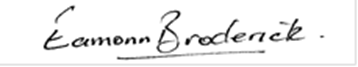 Eamonn Broderick.